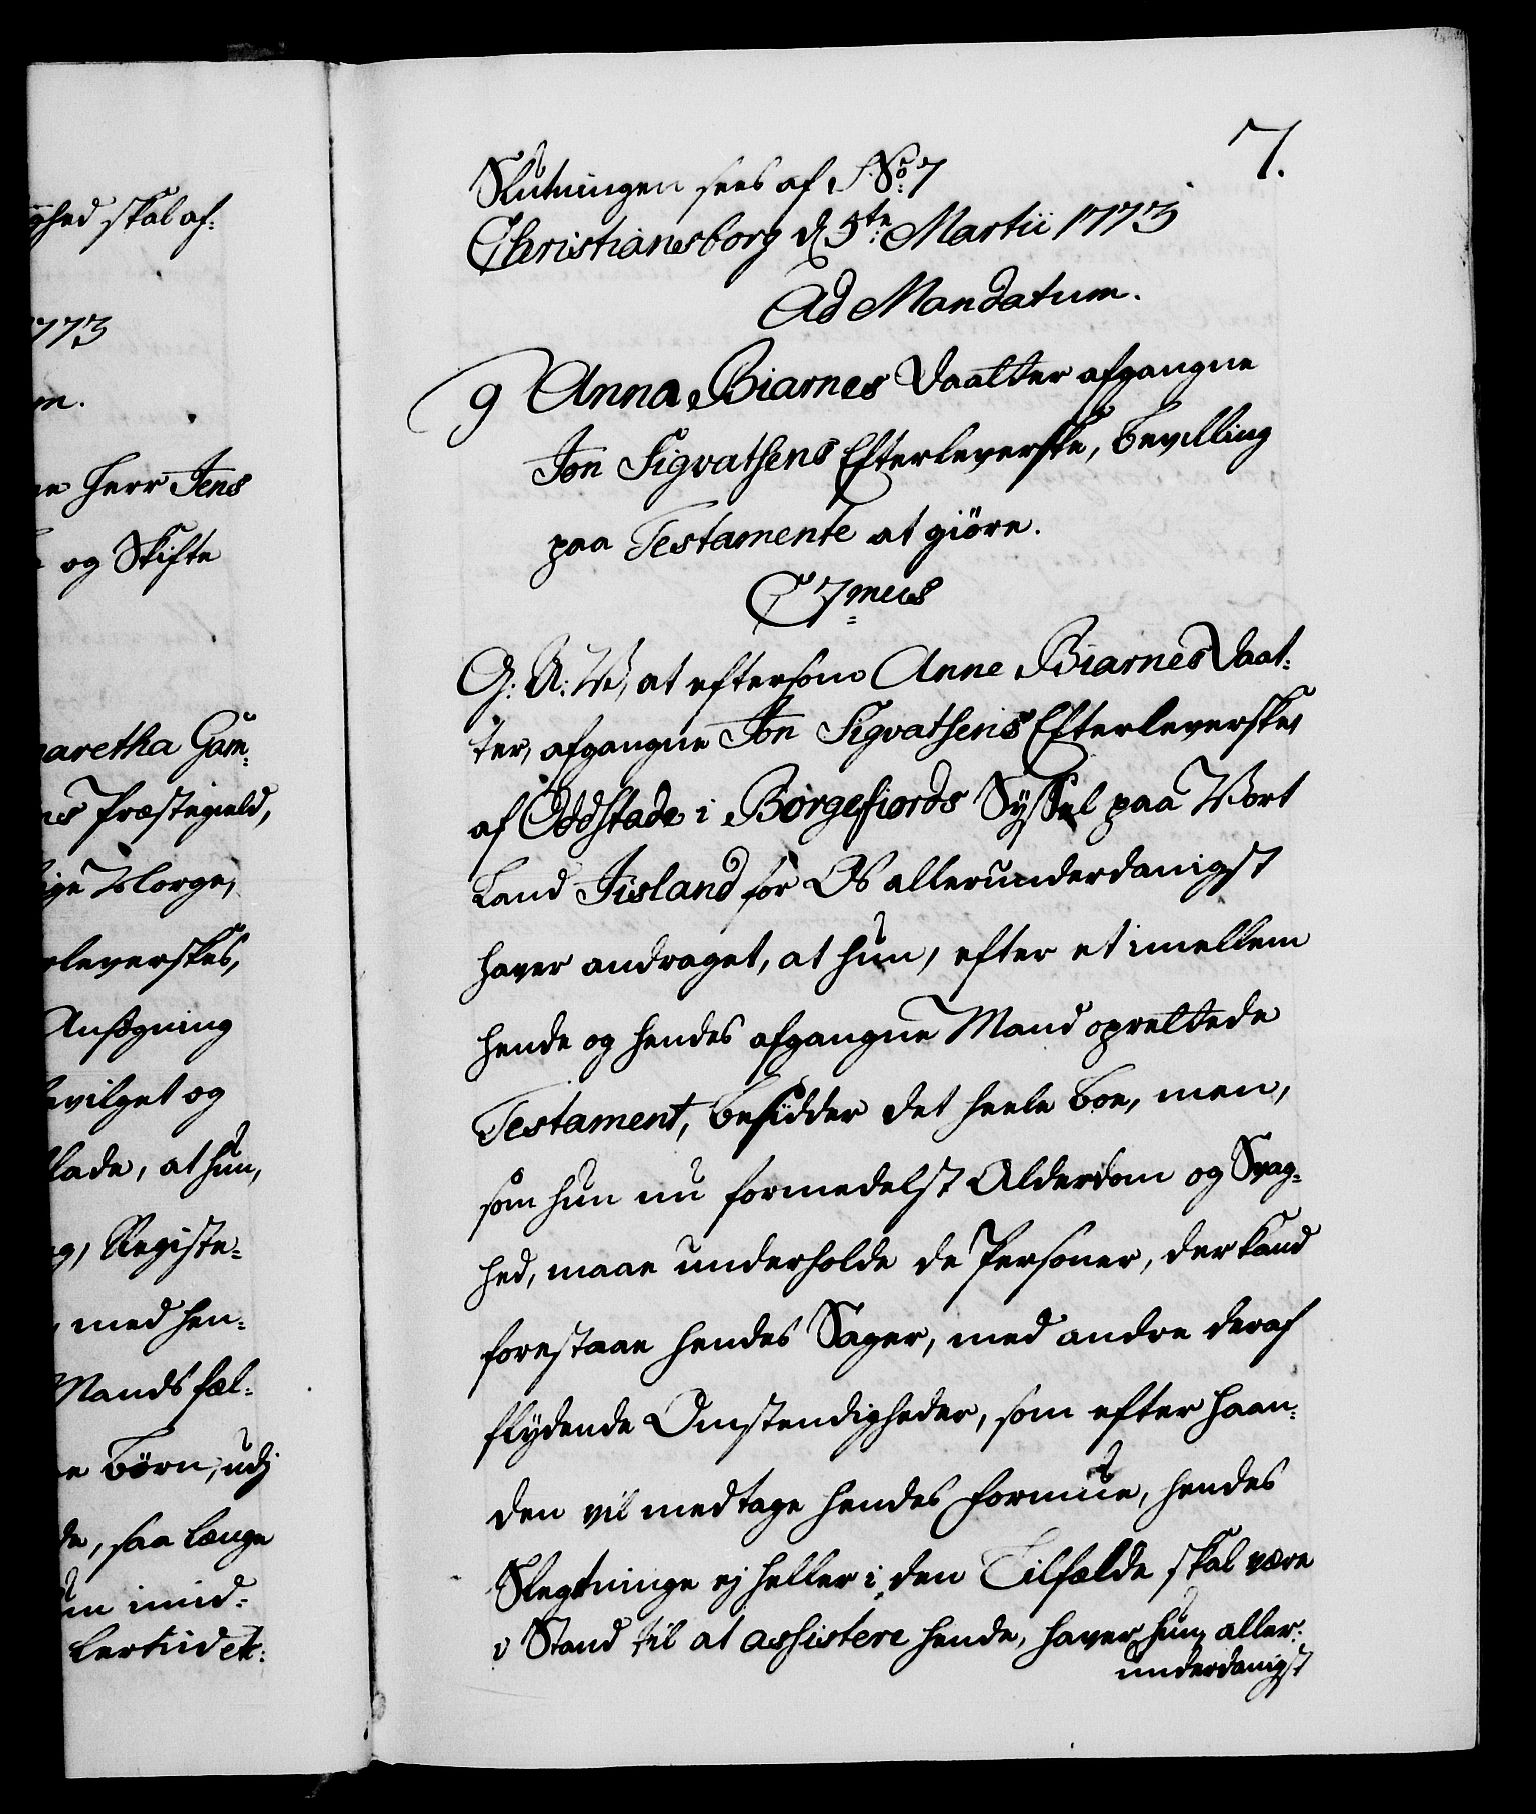 7.
Slutningen sees af No 7
Christiansborg d 5te Martii 1773
Ad Mandatum.
9 Anna Biarnes Daatter afgangne
Jon Sigvatsens Efterleverske, bevilling
paa Testamente at giöre.
C 7mus
G: A: V, at eftersom Anne Biarnes Daat:
ter, afgangne Jon Sigvatsens Efterleverske,
af Oddstade i Borgefiords Syssel paa Vort
Land Jisland for Os allerunderdanigst
haver andraget, at hun, efter et imellem
hende og hendes afgangne Mand oprettede
Testament, besidder det heele Boe, men,
som hun nu formedelst Alderdom og Svag:
hed, maae underholde de Personer, der kand
forestaae hendes Sager, med andre deraf
flydende Omstendigheder, som efter haan:
den vil medtage hendes Formue, hendes
Slegtninge ej heller i den Tilfælde skal være
i Stand til at assistere hende, haver hun aller:
underdanigst
ghed skal af:
1773
m.
ne Herr Jens
og Skifte
garetha Gam:
ns Præstegield,
ige Norge,
rleverskes,
Ansøgning
bevilget og
lade, at hun,
g, Registe:
, med hen:
Mands fæl:
e Börn, udj
de, saa længe
un imid:
lertid et: